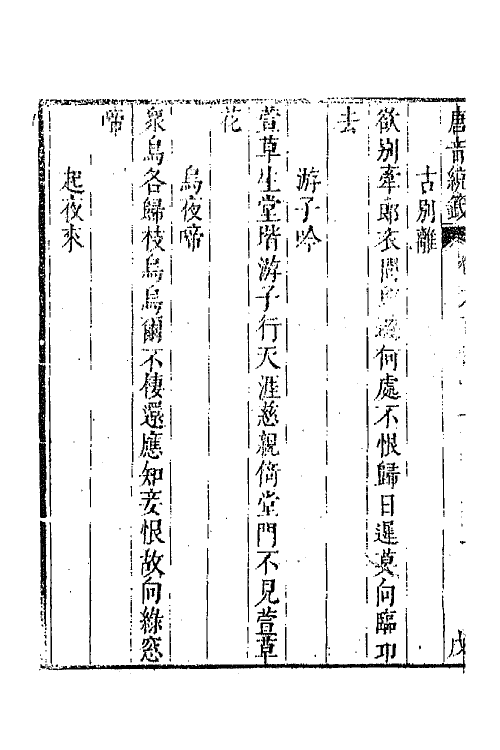 唐音統籤
古別離
欲別牽郎衣問郎遊何處不恨歸日遲莫向臨卭
去
游子吟
萱草生堂堦游子行天涯慈親倚堂門不見萱草
花
烏夜啼
衆鳥各歸枝烏烏爾不棲還應知妾恨故向綠窓
啼
起夜來
戊